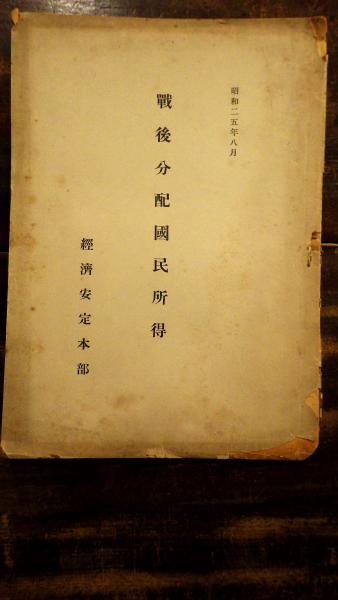 昭和二五年八月
戰後分配國民所得
經濟安定本部